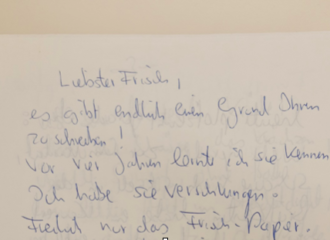 Liebster Frisch,
es gibt endlich einen Grund Ihnen
zu schreiben!
Vor vier Jahren lernte ich sie kennen
Ich habe sie verschlungen.
Freilich nur das Frisch-Papier.